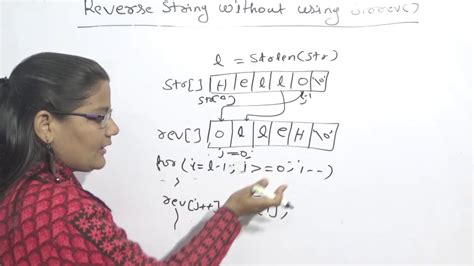 Reverse String without using strrev()
l = strlen(str)
str[] H e l l o \0
str[0] l-1
rev[] o l l e H \0
j=0;
for(i=l-1; i>=0; i--)
rev[j++] ];
}